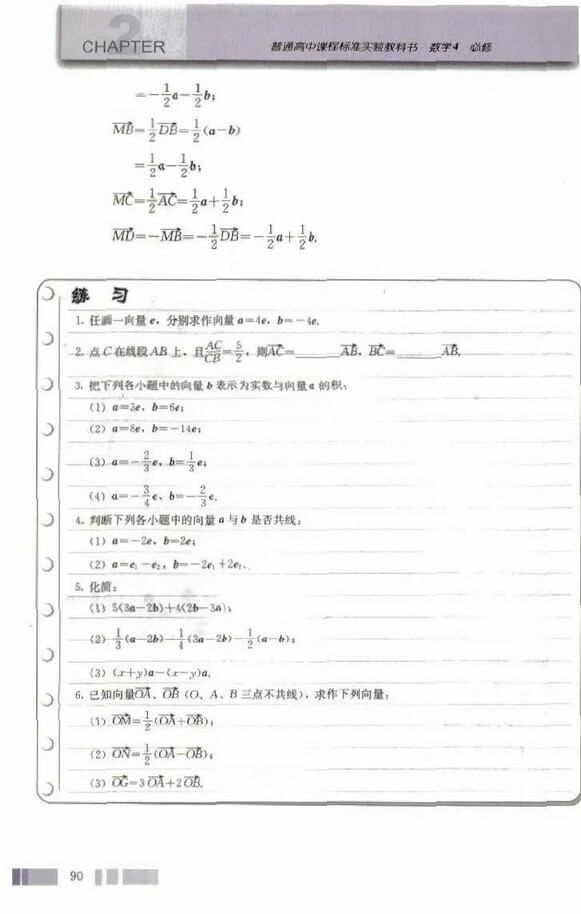 2
CHAPTER 普通高中课程标准实验教科书 数学4 必修
=-1/2 a-1/2 b;
MB→=1/2 DB→=1/2(a-b)
=1/2 a-1/2 b;
MC→=1/2 AC→=1/2 a+1/2 b;
MD→=-MB→=-1/2 DB→=-1/2 a+1/2 b.
练 习
1. 任画一向量 e, 分别求作向量 a=4e, b=-4e.
2. 点 C 在线段 AB 上, 且 AC/CB=5/2, 则 AC→=______AB→, BC→=______AB→.
3. 把下列各小题中的向量 b 表示为实数与向量 a 的积:
(1) a=3e, b=6e;
(2) a=8e, b=-14e;
(3) a=-2/3 e, b=1/3 e;
(4) a=-3/4 e、b=-2/3 e.
4. 判断下列各小题中的向量 a 与 b 是否共线:
(1) a=-2e, b=2e;
(2) a=e₁-e₂, b=-2e₁+2e₂.
5. 化简:
(1) 5(3a-2b)+4(2b-3a);
(2) 1/3(a-2b)-1/4(3a-2b)-1/2(a-b);
(3) (x+y)a-(x-y)a.
6. 已知向量OA→、OB→ (O、A、B 三点不共线), 求作下列向量:
(1) OM→=1/2(OA→+OB→);
(2) ON→=1/2(OA→-OB→);
(3) OG→=3 OA→+2 OB→.
90